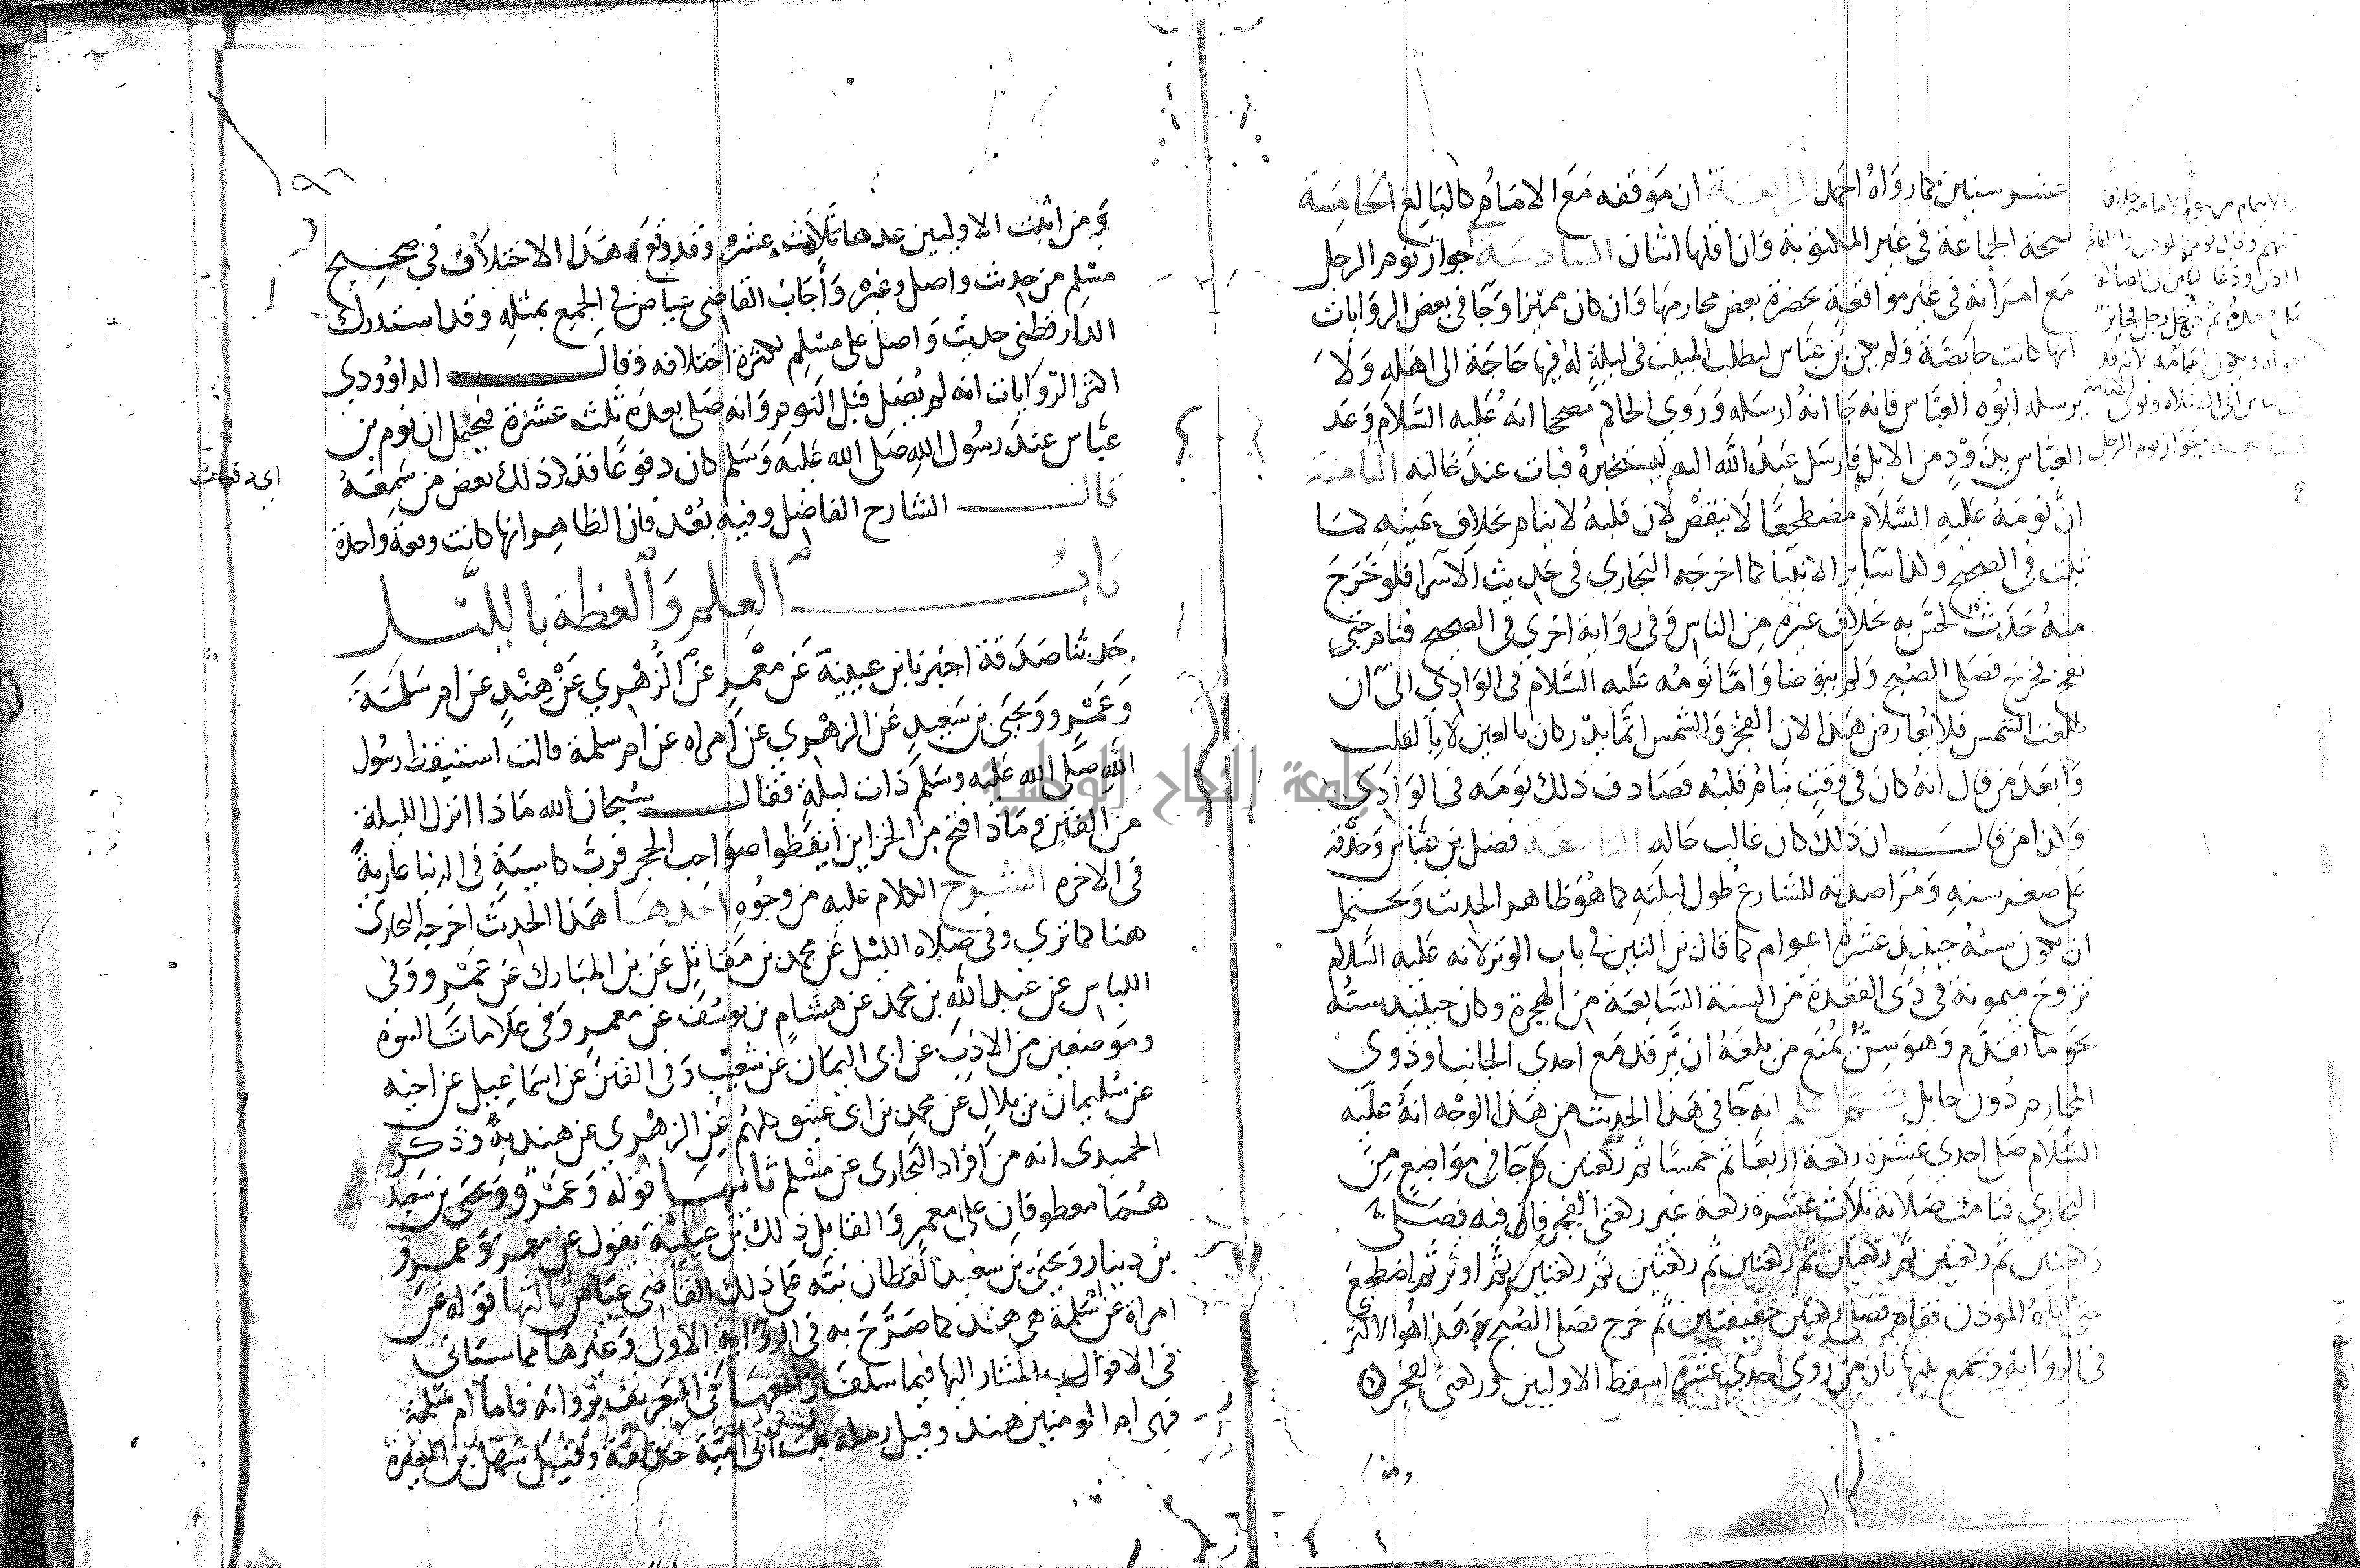 عشر سنين كما رواه احمد الرابعة ان موقفه مع الامام كالبالغ الخامسة
صحة الجماعة في غير المكتوبة وان اقلها اثنان السادسة جواز نوم الرجل
مع امراته في غير مواقعة بحضرة بعض محارمها وان كان مميزا وجا في بعض الروايات
انها كانت حايضة ولم يكن بن عباس ليطلب المبيت في ليلة له فيها حاجة الى اهله ولا
يرسله ابوه العباس فانه جا انه ارسله وروى الحاكم مصححا انه عليه السلام وعد
العباس بذود من الابل فارسل عبد الله اليه ليستخبره فبات عند خالته الثامنة
ان نومه عليه السلام مضطجعا لا ينقض لان قلبه لا ينام بخلاف عينه كما
ثبت في الصحيح وكذا سائر الانبيا كما اخرجه البخاري في حديث الاسرا فلو خرج
منه حدث لحس به بخلاف غيره من الناس وفي رواية اخرى في الصحيح فنام حتى
نفخ فخرج فصلى الصبح ولم يتوضا واما نومه عليه السلام في الوادي الى ان
طلعت الشمس فلا يعارض هذا لان الفجر والشمس انما يدركان بالعين لا بالقلب
وابعد من قال انه كان في وقت ينام قلبه فصادف ذلك نومه في الوادي
وكذا من قال ان ذلك كان غالب حاله التاسعة فضل بن عباس وحذقه
على صغر سنه ومراصدته للشارع طول ليلته كما هو ظاهر الحديث ويحتمل
ان يكون سنه حينئذ عشرة اعوام كما قال بن التين في باب الوتر لانه عليه السلام
تزوج ميمونة في ذي القعدة من السنة السابعة من الهجرة وكان حينئذ سنه
نحو ما تقدم وهو سن يمنع من بلغه ان يرقد مع احدي الجانبا وذوى
المحارم دون حايل ثم اعلم انه جا في هذا الحديث من هذا الوجه انه عليه
السلام صلى احدي عشرة ركعة اربعا ثم خمسا ثم ركعتين وجا في مواضع من
البخاري فتامت صلاته ثلاث عشرة ركعة غير ركعتى الفجر قال فيه فصلى
ركعتين ثم ركعتين ثم ركعتين ثم ركعتين ثم ركعتين ثم ركعتين ثم اوتر ثم اضطجع
حتى اتاه الموذن فقام فصلى ركعتين خفيفتين ثم خرج فصلى الصبح وهذا هو الاكثر
في الرواية وجمع بينها بان من روى احدي عشرة اسقط الاوليين وركعتى الفجر
جواز نوم الرجل
١٩٦
ومن اثبت الاوليين عدها ثلاث عشرة وقد وقع هذا الاختلاف في صحيح
مسلم من حديث واصل وغيره واجاب القاضى عياض في الجمع بمثله وقد استدرك
الدارقطنى حديث واصل على مسلم لكثرة اختلافه وقال الداوودي
اكثر الروايات انه لم يصل قبل النوم وانه صلى بعده ثلث عشرة فيحتمل ان نوم بن
عباس عند رسول الله صلى الله عليه وسلم كان دفوعا فذكر ذلك بعض من سمعه
قال الشارح الفاضل وفيه بعد فان الظاهر انها كانت وقعة واحدة
باب العلم والعظة بالليل
حدثنا صدقة اخبرنا بن عيينة عن معمر عن الزهري عن هند عن ام سلمة
وعمرو ويحيى بن سعيد عن الزهري عن امراه عن ام سلمة قالت استيقظ رسول
الله صلى الله عليه وسلم ذات ليلة فقال سبحان الله ماذا انزل الليلة
من الفتن وماذا فتح من الخزاين ايقظوا صواحب الحجر فرب كاسية في الدنيا عارية
في الاخره الشرح الكلام عليه من وجوه احدها هذا الحديث اخرجه البخارى
هنا كما ترى وفي صلاه الليل عن محمد بن مقاتل عن بن المبارك عن عمرو وفي
اللباس عن عبد الله بن محمد عن هشام بن يوسف عن معمر وفي علامات النبوه
وموضعين من الادب عن ابى اليمان عن شعيب وفي الفتن عن اسماعيل عن اخيه
عن سليمان بن بلال عن محمد بن ابى عتيق كلهم عن الزهري عن هند به وذكر
الحميدى انه من افراد البخارى عن مسلم ثانيها قوله وعمرو ويحيى بن سعيد
هما معطوفان على معمر والقايل ذلك بن عيينة يقول عن معمر وعمرو
بن دينار ويحيى بن سعيد القطان نبه على ذلك القاضى عياض ثالثها قوله عن
امراة عن سلمة هى هند كما صرح به في الرواية الاولى وغيرها مما سياتى
في الاقوال المشار اليها فيما سلف رابعها في التعريف برواته فاما ام سلمة
فهى ام المومنين هند وقيل رملة بنت ابى امية حذيفة وقيل سهل بن المغيرة
جامعة النجاح الوطنية